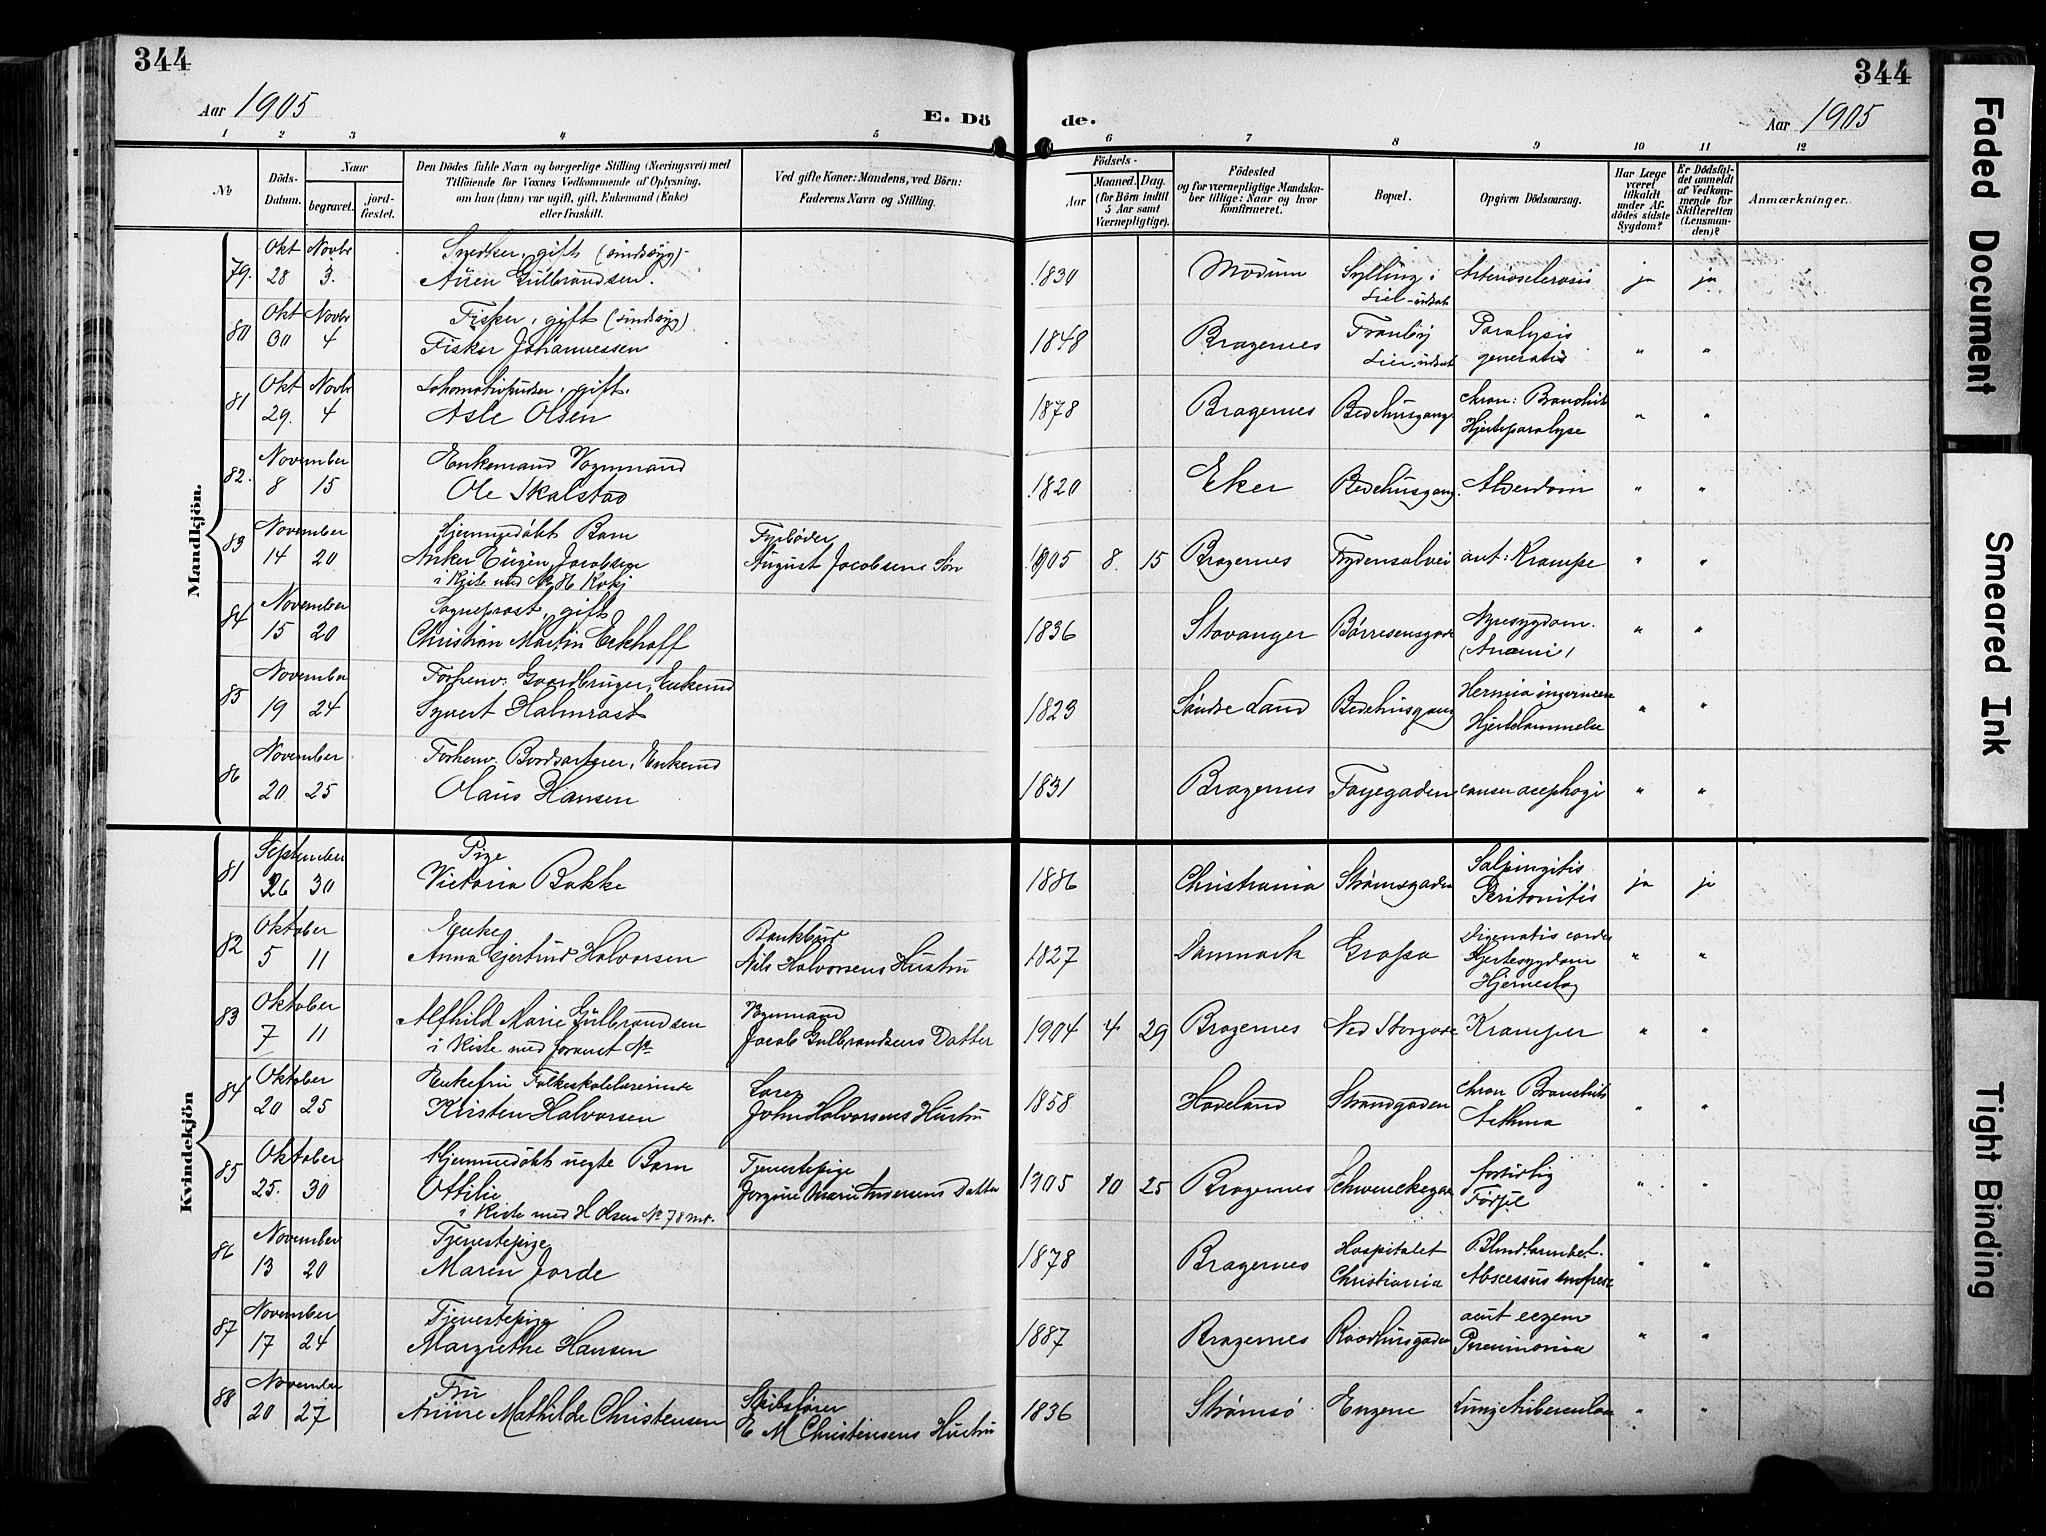 344
344
Aar 1905
E. Dö
de.
Aar 1905
1 2 3 4 5 6 7 8 9 10 11 12
No
Döds-Datum.
Naar
begravet.
jord-fæstet.
Den Dödes fulde Navn og borgerlige Stilling (Næringsvei) med
Tilföiende for Voxnes Vedkommende af Oplysning,
om han (hun) var ugift, gift, Enkemand (Enke)
eller fraskilt.
Ved gifte Koner: Mandens, ved Börn:
Faderens Navn og Stilling.
Födsels-
Aar
Maaned. Dag.
(for Börn indtil
5 Aar samt
Værnepligtige).
Födested
og for værnepligtige Mandska-
ber tillige: Naar og hvor
konfirmeret.
Bopæl.
Opgiven Dödsaarsag.
Har Læge
været
tilkaldt
under Af-
dödes sidste
Sygdom?
Er Dödsfal-
det anmeldt
af Vedkom-
mende for
Skifteretten
(Lensman-
den)?
Anmærkninger.
Mandkjön.
79. Okt 28 Novbr 3. Snedker, gift (sindssyg)
Auen Gulbrandsen. 1830 Modum Sylling i Lier Arteriosclerosis ja ja
80 Okt 30 Novbr 4 Fisker, gift (sindssyg)
Fisker Johannessen 1848 Bragernes Tranby Lier Paralysis generalis " "
81 Okt 29. Novbr 4 Lokomotivpudser, gift.
Asle Olsen 1878 Bragernes Bedehusgang chron: Bronchit Hjerteparalyse " "
82. November 8 15 Enkemand Vognmand
Ole Skalstad 1820 Eker Bedehusgang. Alderdom " "
83 November 14 20 Hjemmedöbt Barn
Anker Eugen Jacobsen
i Kiste med No 86 Kvkj
Fyrbøder
August Jacobsens Søn 1905 8. 15 Bragernes Frydensalvei aut: Krampe " "
84 November 15 20 Sogneprest, gift
Christian Martin Eckhoff 1836 Stavanger Børresensgade Nyresygdom. (Anæmi) " "
85 November 19 24 Forhenv. Gaardbruger, Enkemd
Syvert Halmrast 1823 Søndre Land Bedehusgang Hernia Hjertelammelse " "
86 November 20 25 Forhenv. Bordsorterer, Enkemd
Olaus Hansen 1831 Bragernes Fayegaden cancer oesophagi " "
Kvindekjön
81 September 26 30 Pige
Victoria Bakke 1886 Christiania Strømsgaden Salpingitis Peritonitis ja ja
82 Oktober 5 11 Enke
Anna Gjertrud Halvorsen
Bankbud
Nils Halvorsens Hustru 1827 Danmark Grossa Degenatis cordis Hjertesygdom Hjerneslag " "
83 Oktober 7 11 Alfhild Marie Gulbrandsen
i Kiste med foranst No
Vognmand
Jacob Gulbrandsens Datter 1904 4 29 Bragernes Ned Storgade Kramper " "
84 Oktober 20 25 Enkefru Folkeskolelærerinde
Kirsten Halvorsen
Lærer
John Halvorsens Hustru 1858 Hadeland Strandgaden chron Bronchit Asthma " "
85 Oktober 25. 30 Hjemmedöbt uegte Barn
Ottilie
i Kiste med H Olsen No 78 m.k.
Tjenestepige
Jorgine Marie Andersens Datter 1905 10 25 Bragernes Schwenckegae fortidlig Fødsel " "
86 November 13 20 Tjenestepige
Maren Jorde 1878 Bragernes Hospitalet Christiania Blindtarmbet. Abscessus " "
87 November 17 24 Tjenestepige
Margrethe Hansen 1887 Bragernes Raadhusgaden aut eczem Pneumonia " "
88 November 20 27 Fru
Anine Mathilde Christensen
Skibsfører
E M Christensens Hustru 1836 Strømsö Engene Lungetuberculose " "
Faded Document
Smeared Ink
Tight Binding